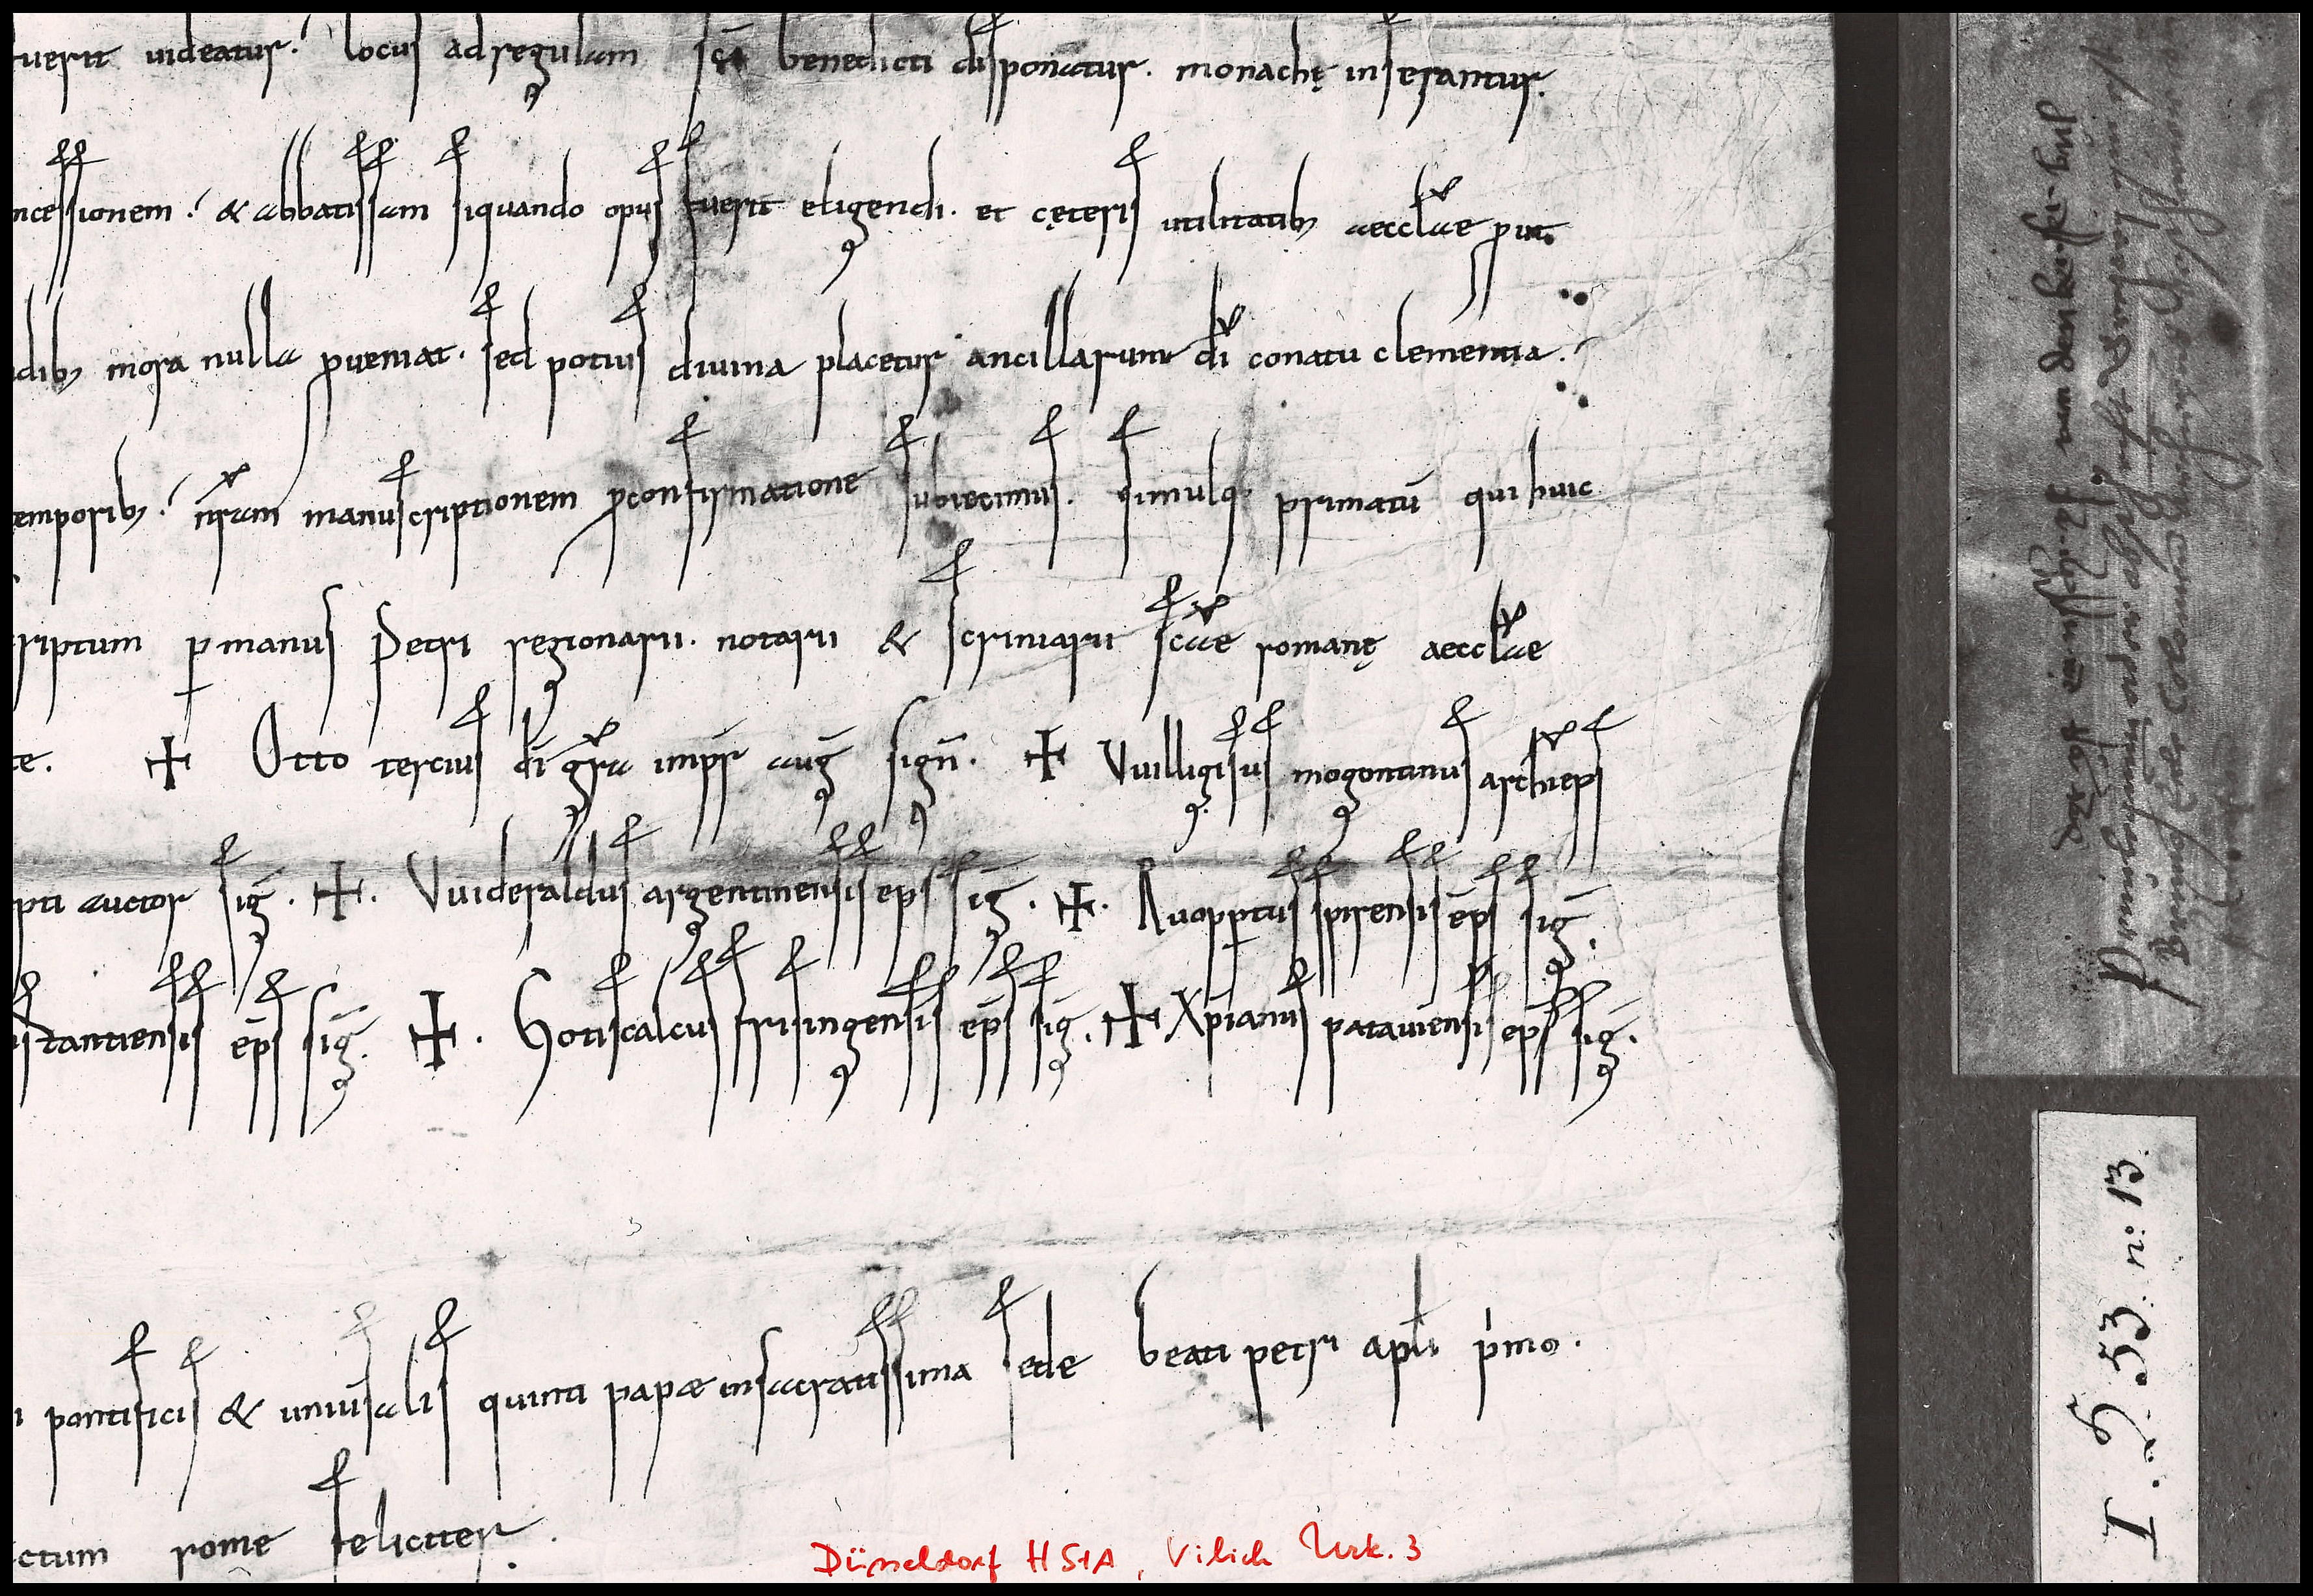 fuerit uideatur. locus ad regulam sc̄i benedicti disponatur. monachę inserantur.
ncessionem. & abbatissam siquando opus fuerit eligendi. et cęteris utilitatib; aeccl̄ae puit.
dib; mora nulla proueniat. sed potius diuina placetur ancillarum dī conatu clementia.
temporib; nr̄am manuscriptionem proconfirmatione subiecimus. simulq; primatū qui huic
criptum p manus Petri regionarii. notarii & scriniarii sc̄ae romanę aeccl̄ae
te. ✝ Otto tercius dī gr̄a imp̄r auḡ sign̄. ✝ Vuilligisus mogontinus archiep̄s
pti auctor siḡ. ✝. Vuideraldus argentinensis ep̄s siḡ. ✝. Ruopptus spirensis ep̄s siḡ.
stantiensis ep̄s siḡ. ✝. Gotiscalcus frisingensis ep̄s siḡ. ✝ Xp̄ianus patauiensis ep̄s siḡ.
i pontificis & uniūsalis quinti papæ insacratissima sede beati petri apl̄i p̄mo.
ctum rome feliciter.
Düsseldorf HStA, Vilich Urk. 3
I. G. 53. n: 13.